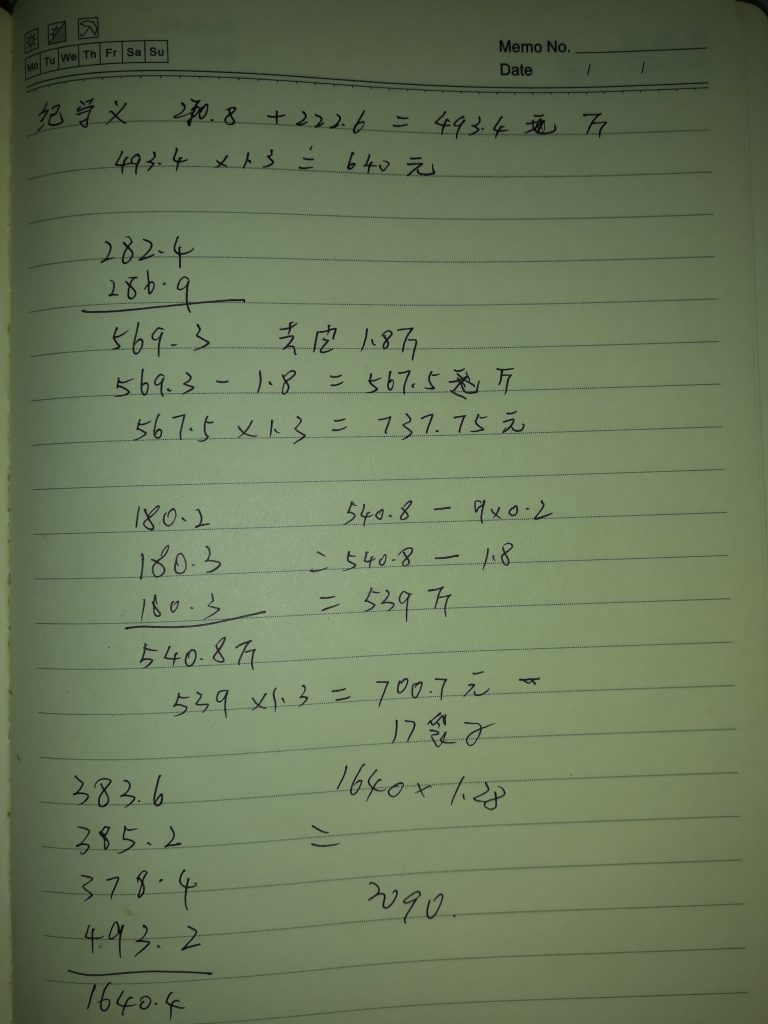 Mo Tu We Th Fr Sa Su
Memo No.
Date / /
纪学义 270.8 + 222.6 = 493.4 斤
493.4 × 1.3 = 640 元
282.4
286.9
569.3 去皮 1.8斤
569.3 - 1.8 = 567.5 斤
567.5 × 1.3 = 737.75 元
180.2 540.8 - 9×0.2
180.3 = 540.8 - 1.8
180.3 = 539 斤
540.8斤
539 × 1.3 = 700.7 元
17袋
383.6 1640 × 1.28
385.2 =
378.4
493.2 2090.
1640.4